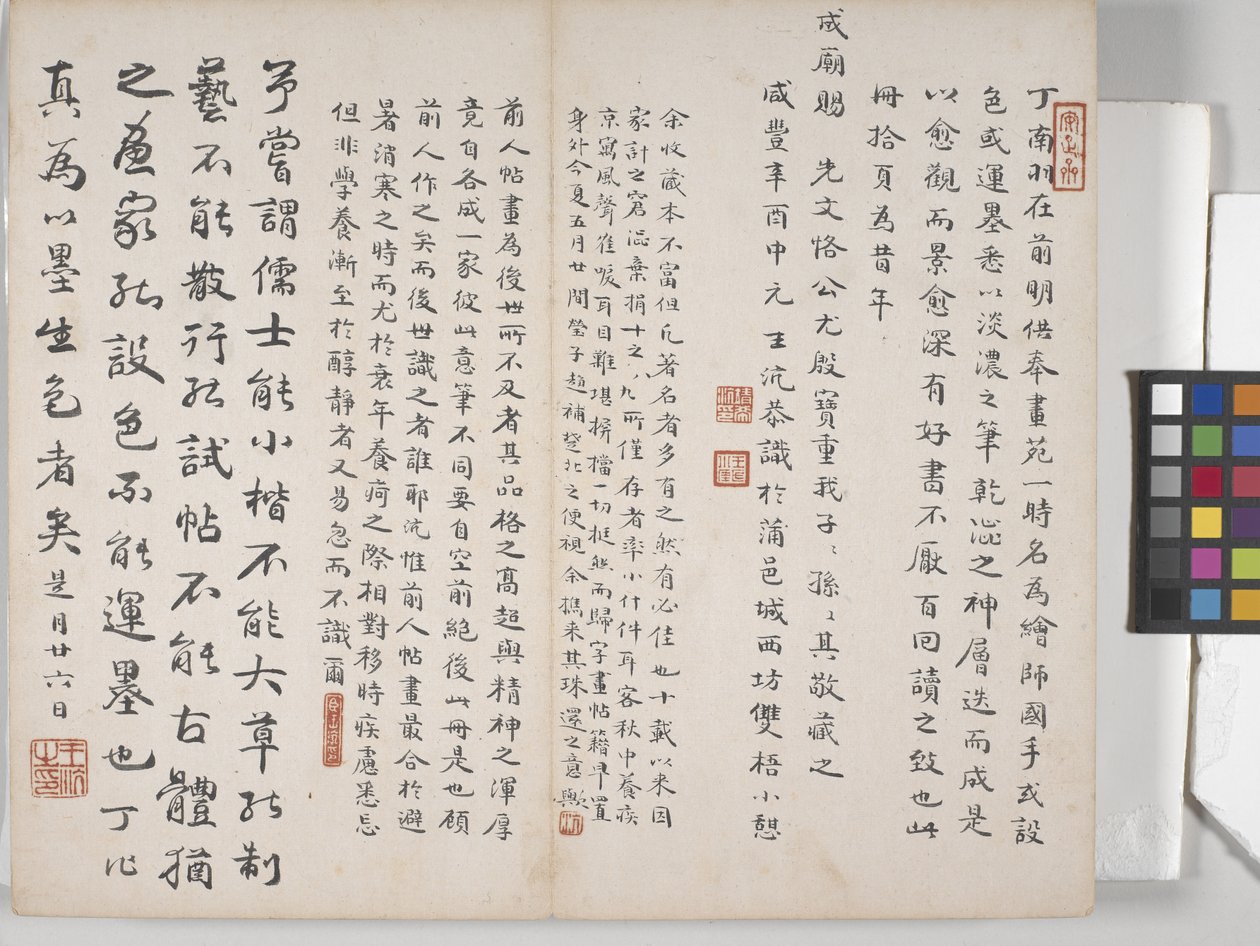 丁南羽在前明供奉畫苑一時名為繪師國手或設
色或運墨悉以淡濃之筆乾泌之神層迭而成是
以愈觀而景愈深有好書不厭百回讀之致也此
冊拾頁為昔年
成廟賜 先文恪公尤殷寶重我子〻孫〻其敬藏之
咸豐辛酉中元 王沆恭識於蒲邑城西坊雙梧小憩
余收藏本不富但凡著名者多有之然有必佳也十載以來因
家計之窘盜棄捐十之八九所僅存者率小什件耳客秋中養疾
京寓風聲隺唳耳目難堪摒擋一切挺然而歸字畫帖籍早置
身外今夏五月廿間瑩子趙補楚北之便視余攜来其珠還之意歟
前人帖畫為後世所不及者其品格之高超與精神之渾厚
竟自各成一家彼此意筆不同要自空前絕後此冊是也顧
前人作之矣而後世識之者誰耶沆惟前人帖畫最合於避
暑消寒之時而尤於衰年養疴之際相對移時疾慮悉忘
但非學養漸至於醇靜者又易忽而不識爾
予嘗謂儒士能小楷不能大草能制
藝不能散行能試帖不能古體猶
之畫家能設色不能運墨也丁心
真為以墨生色者矣 是月廿六日
王沆之印